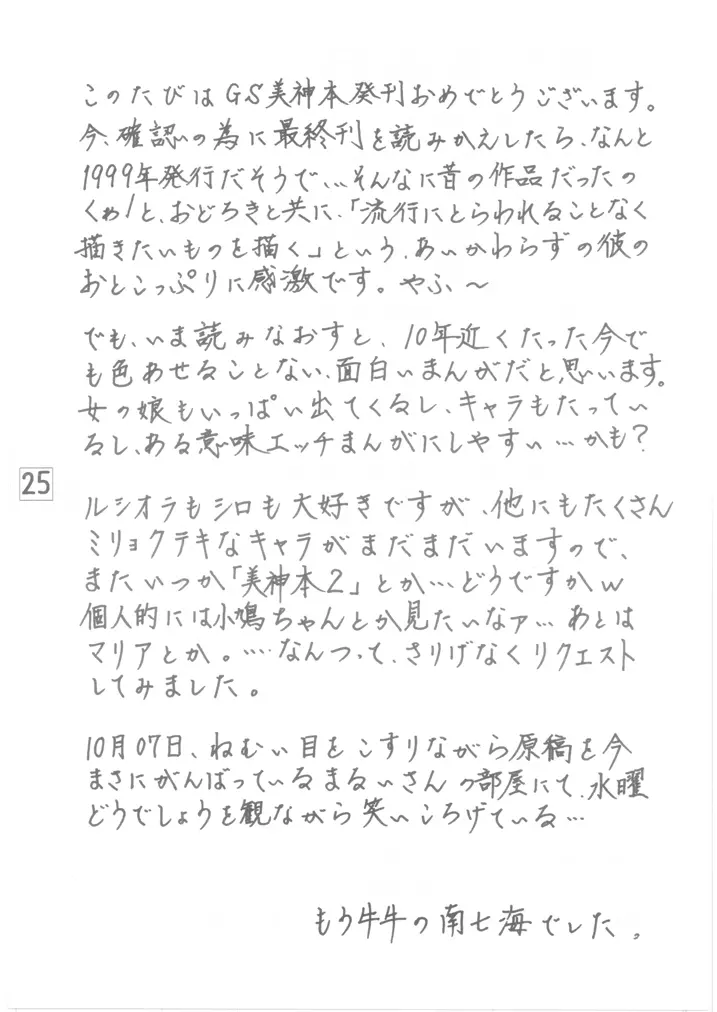 このたびはGS美神本発刊おめでとうございます。
今、確認の為に最終刊を読みかえしたら、なんと
1999年発行だそうで、、、そんなに昔の作品だったの
くぁ!と、おどろきと共に、「流行にとらわれることなく
描きたいものを描く」という、あいかわらずの彼の
おとこっぷりに感激です。やふ〜
でも、いま読みなおすと、10年近くたった今で
も色あせることない、面白いまんがだと思います。
女の娘もいっぱい出てくるし、キャラもたってい
るし、ある意味エッチまんがにしやすい…かも?
25
ルシオラもシロも大好きですが、他にもたくさん
ミリョクテキなキャラがまだまだいますので、
またいつか「美神本2」とか…どうですかw
個人的には小鳩ちゃんとか見たいなァ… あとは
マリアとか。…なんつって、さりげなくリクエスト
してみました。
10月07日、ねむい目をこすりながら原稿を今
まさにがんばっているまるぃさんの部屋にて、水曜
どうでしょうを観ながら笑いころげている…
もう牛牛の南七海でした。